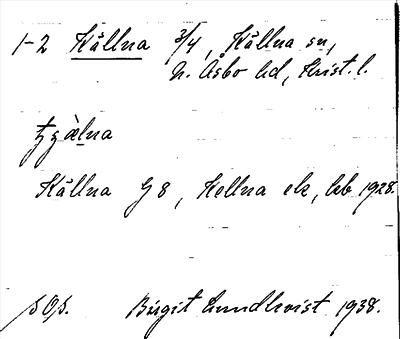 1-2 Källna 3/4, Källna sn,
N. Åsbo hd, Krist. l.
Källna G8, Kellna ek, hb 1928.
Birgit Lundkvist 1938.